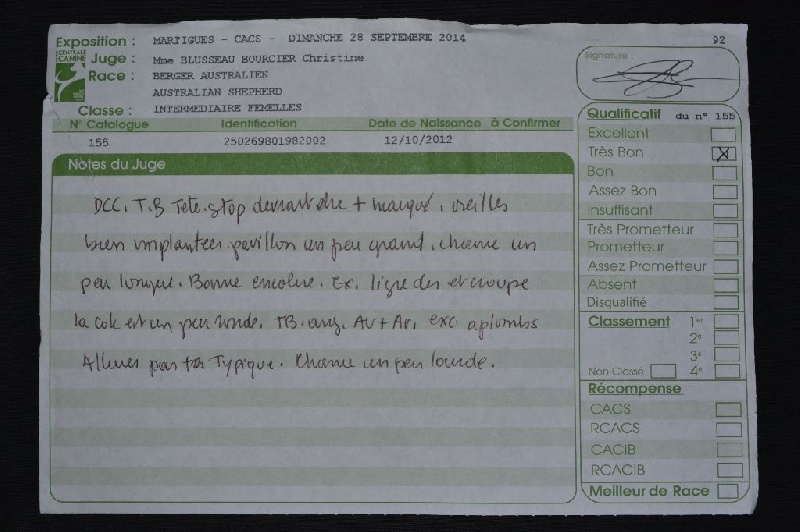 Exposition : MARTIGUES - CACS - DIMANCHE 28 SEPTEMBRE 2014
92
CENTRALE CANINE
Juge : Mme BLUSSEAU BOURCIER Christine
Race : BERGER AUSTRALIEN
AUSTRALIAN SHEPHERD
Classe : INTERMEDIAIRE FEMELLES
N° Catalogue Identification Date de Naissance à Confirmer
155 250269801982002 12/10/2012
Notes du Juge
DCC. T.B Tete. stop devrait etre + marqué, oreilles
bien implantées pavillon un peu grand, un
peu longue. Bonne encolure. Ex. ligne dos et croupe
la est un peu ronde. TB. ang. Av + Ar, exc aplombs
Allures pas tres Typique. un peu lourde.
Signature :
Qualificatif du n° 155
Excellent
Très Bon X
Bon
Assez Bon
Insuffisant
Très Prometteur
Prometteur
Assez Prometteur
Absent
Disqualifié
Classement 1er
2e
3e
Non Classé 4e
Récompense
CACS
RCACS
CACIB
RCACIB
Meilleur de Race